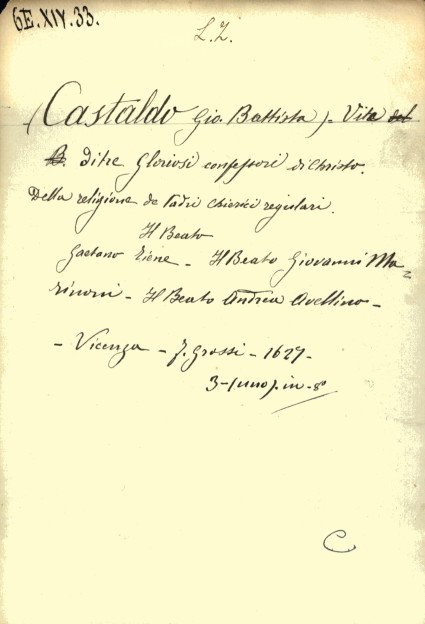 6E.XIV.33.
L.Z.
(Castaldo Gio. Battista) - Vita del
B. di tre Gloriosi confessori di Christo.
Della religione de Padri chierici regolari.
Il Beato
Gaetano Tiene - Il Beato Giovanni Ma=
rinoni - Il Beato Andrea Avellino -
- Vicenza - F. Grossi - 1627 -
3 - (uno). in - 8°
C